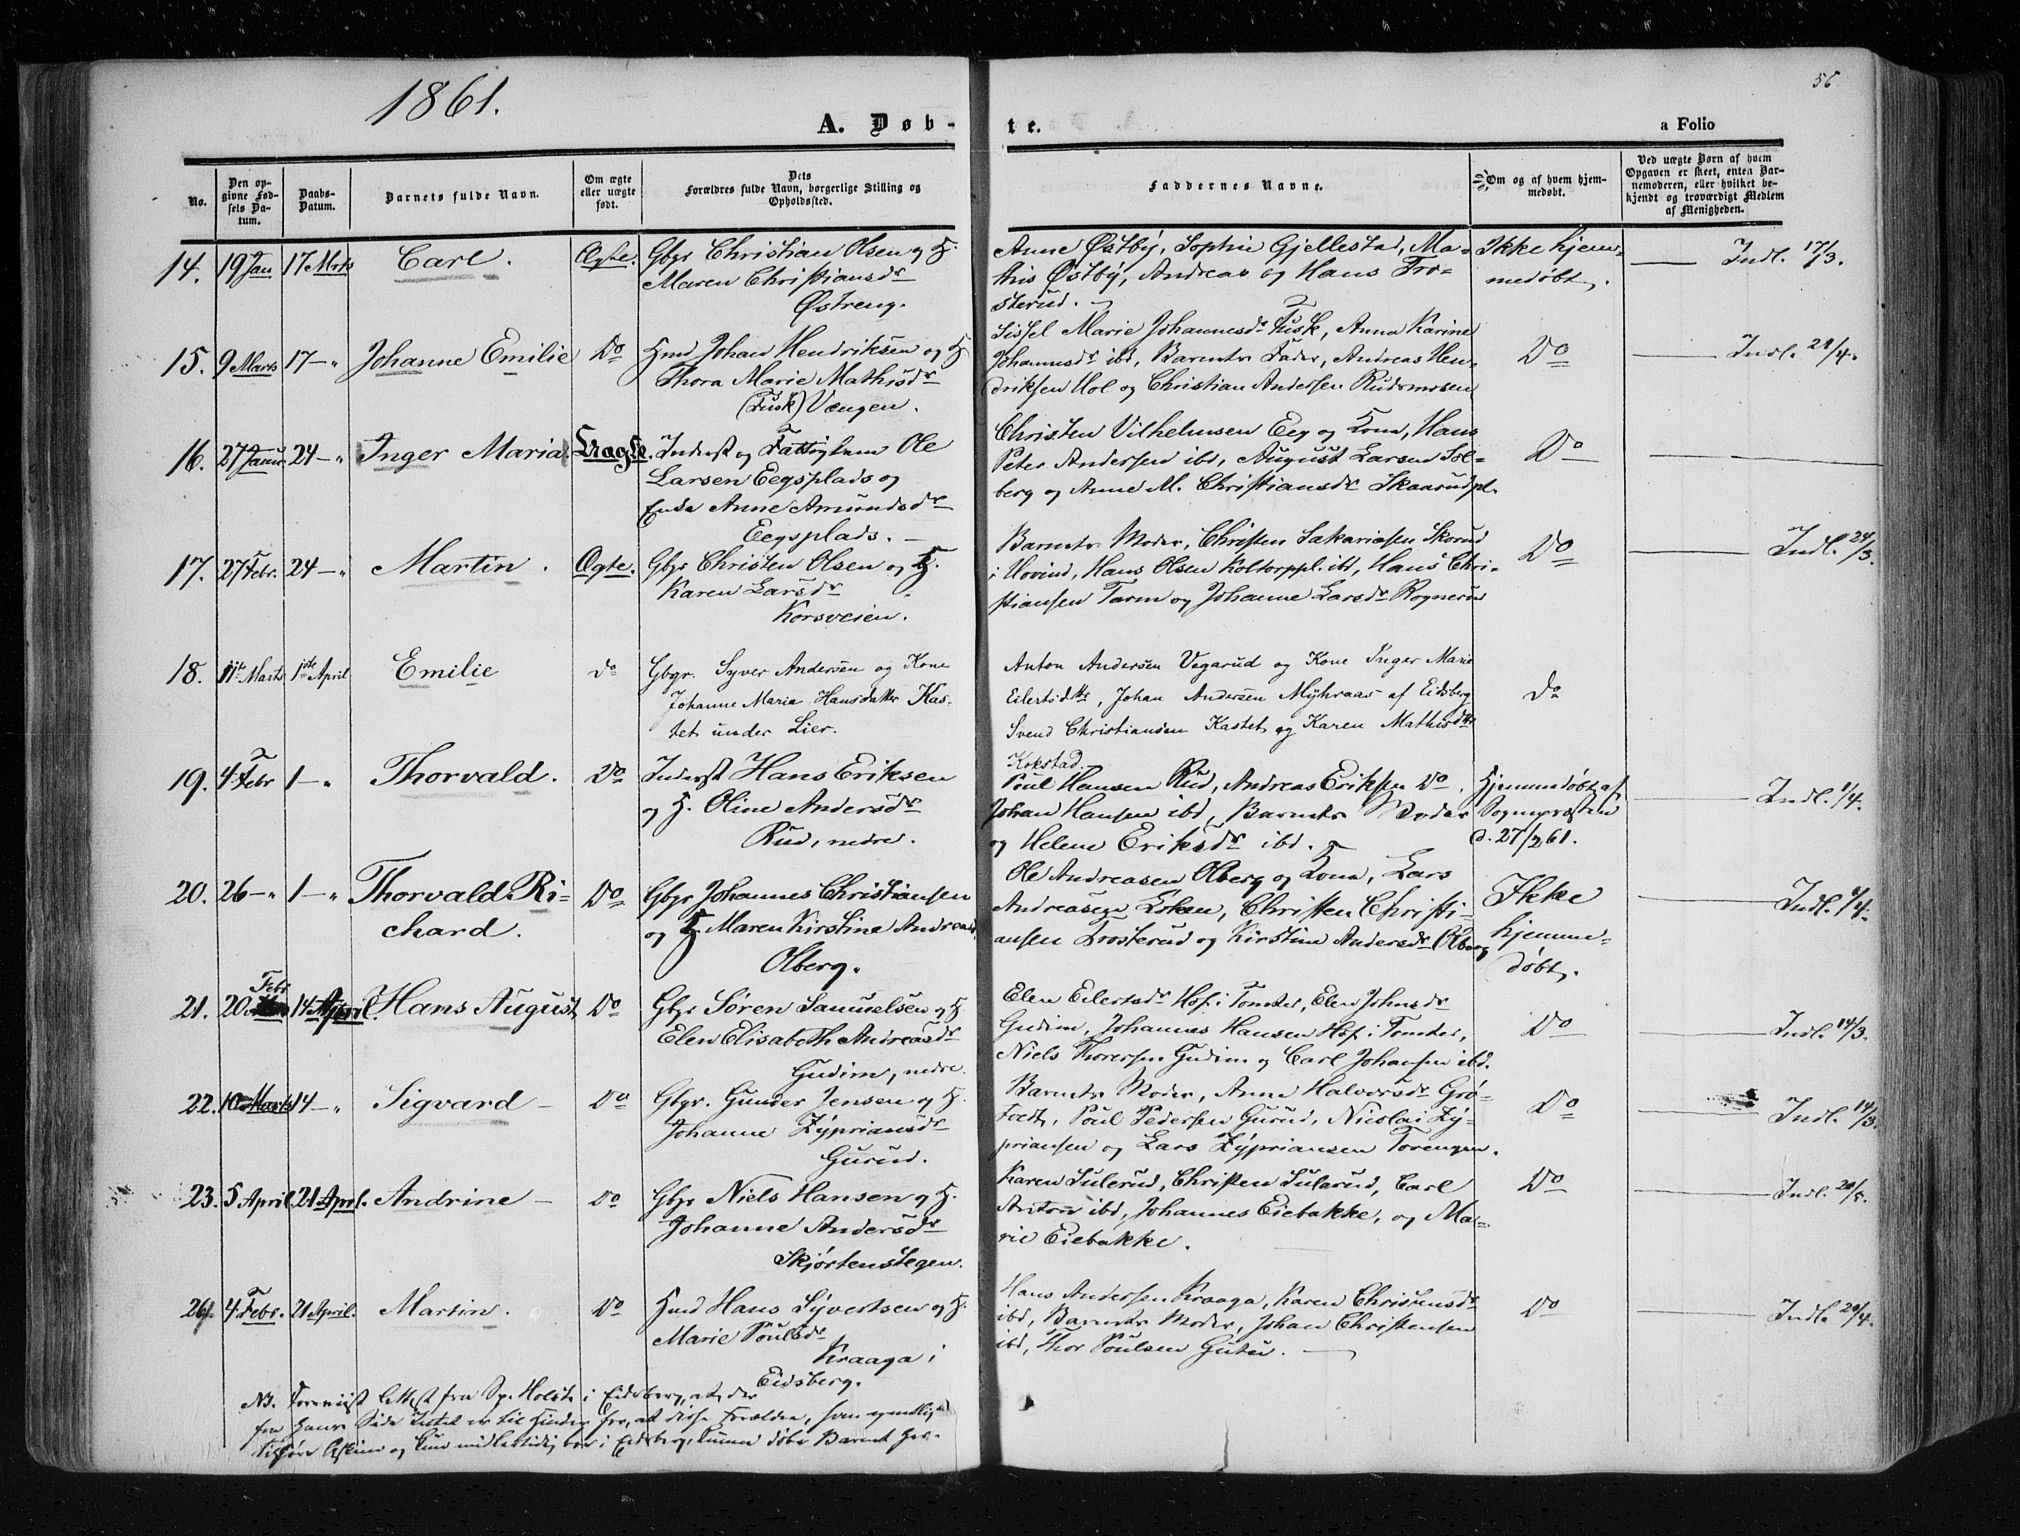 1861.
56
A. Døb-
te.
a Folio
No.
Den op-
givne Fød-
sels Da-
tum.
Daabs-
Datum.
Barnets fulde Navn.
Om ægte
eller uægte
født.
Dets
Forældres fulde Navn, borgerlige Stilling og
Opholdssted.
Faddernes Navne.
Om og af hvem hjem-
medøbt.
Ved uægte Børn af hvem
Opgaven er skeet, enten Bar-
nemoderen, eller hvilket be-
kjendt og troværdigt Medlem
af Menigheden.
14. 19 Jan 17 Mrts Carl. Ægte. Gbgr Christian Olsen og H.
Maren Christiansdr
Østreng.
Anne Østby, Sophie Gjellestad, Ma-
this Østby, Andreas og Hans Tro-
sterud.
Ikke hjem-
medøbt.
Indl. 17/3.
15. 9 Marts 17 — " Johanne Emilie Do Hmd Johan Hendriksen og H
Thora Marie Mathisdr
(Fusk) Vængen.
Sissel Marie Johannesdr Fusk, Anna Karine
Johannesdr ibd, Barnets Fader, Andreas Hen-
driksen Hol og Christian Andersen Rudsmosen
Do
Indl. 21/4.
16. 27 Janu. 24 — " Inger Maria. Uægte. Inderst og Fattiglem Ole
Larsen Eegsplads og
Enke Anne Amundsdr
Eegsplads. —
Christen Vilhelmsen Eeg og Kone, Hans
Peter Andersen ibd, August Larsen Sol-
berg og Anne M. Christiansdr Skaarudpl.
Do
17. 27 Febr. 24 — " Martin. Ægte. Gbgr Christen Olsen og H.
Karen Larsdr
Korsveien.
Barnets Moder, Christen Sakariasen Skorud
i Hovind, Hans Olsen Koltorppl. ibd, Hans Chri-
stiansen Tarm og Johanne Larsdr Rognerud
Do
Indl. 24/3.
18. 11te Marts 1ste April Emilie do Gbgr. Syver Andersen og Kone
Johanne Maria Hansdatter Kas-
tet under Lier.
Anton Andersen Vegarud og Kone Inger Marie
Eilertsdtr, Johan Andersen Myhraas af Eidsberg
Svend Christiansen Kastet og Karen Mathisdtr
Kokstad.
do
19. 4 Febr 1 — " Thorvald. Do Inderst Hans Eriksen
og H. Oline Andersdr
Rud, nedre.
Poul Hansen Rud, Andreas Eriksen Do.
Johan Hansen ibd, Barnets Moder
og Helene Eriksdr ibd.
Hjemmedøbt af
Sognepræsten
d. 27/2 61.
Indl. 1/4.
20. 26 — " 1 — " Thorvald Ri-
chard. Do Gbgr Johannes Christiansen
og H Maren Kirstine Andreasd
Olberg.
Ole Andreasen Olberg og Kone, Lars
Andreasen, Christen Christi-
ansen Trosterud og Kirstine Andersdr Olberg
Ikke
hjemme-
døbt.
Indl. 1/4.
21. 20 Febr 14 April. Hans August Do Gbgr Søren Samuelsen og H
Elen Elisabeth Andreasdr
Gudim, nedre.
Elen Eilertsdr Hof i Tomter, Elen Johnsdr
Gudim, Johannes Hansen Hof i Tomter,
Niels Thoresen Gudim og Carl Johansen ibd.
Do
Indl. 14/3.
22. 10 Marts 14 — " Sigvard — Do Gbgr. Gunder Jensen og H.
Johanne Zypriansdr
Gurud.
Barnets Moder, Anne Halvorsdr Grø-
fedt, Poul Pedersen Gurud, Nicolai Zy-
priansen og Lars Zypriansen Torengen.
Do
Indl. 14/3.
23. 5 April. 21 Aprl. Andrine — Do Gbgr Niels Hansen og H.
Johanne Andersdr
Skjørtenstegen.
Karen Sulerud, Christen Sulerud, Carl
Anton ibd, Johannes Eiebakke, og Ma-
rie Eiebakke.
Do
Indl. 20/5.
24. 4 Febr. 21 April. Martin. Do Hmd Hans Syvertsen og H.
Marie Poulsdr
Kraaga i
Eidsberg.
Hans Andersen Kraaga, Karen Christensdr
ibd, Barnets Moder, Johan Christensen
ibd, Thor Poulsen Gutu.
Do
Indl. 20/4.
NB. Foreviist Attest fra Sp. Holst i Eidsberg, at der
fra hans Side Intet er til Hinder for, at disse Forældre, som egentlig
og kun midlertidig bor i Eidsberg, kunne døbe Barnet her.